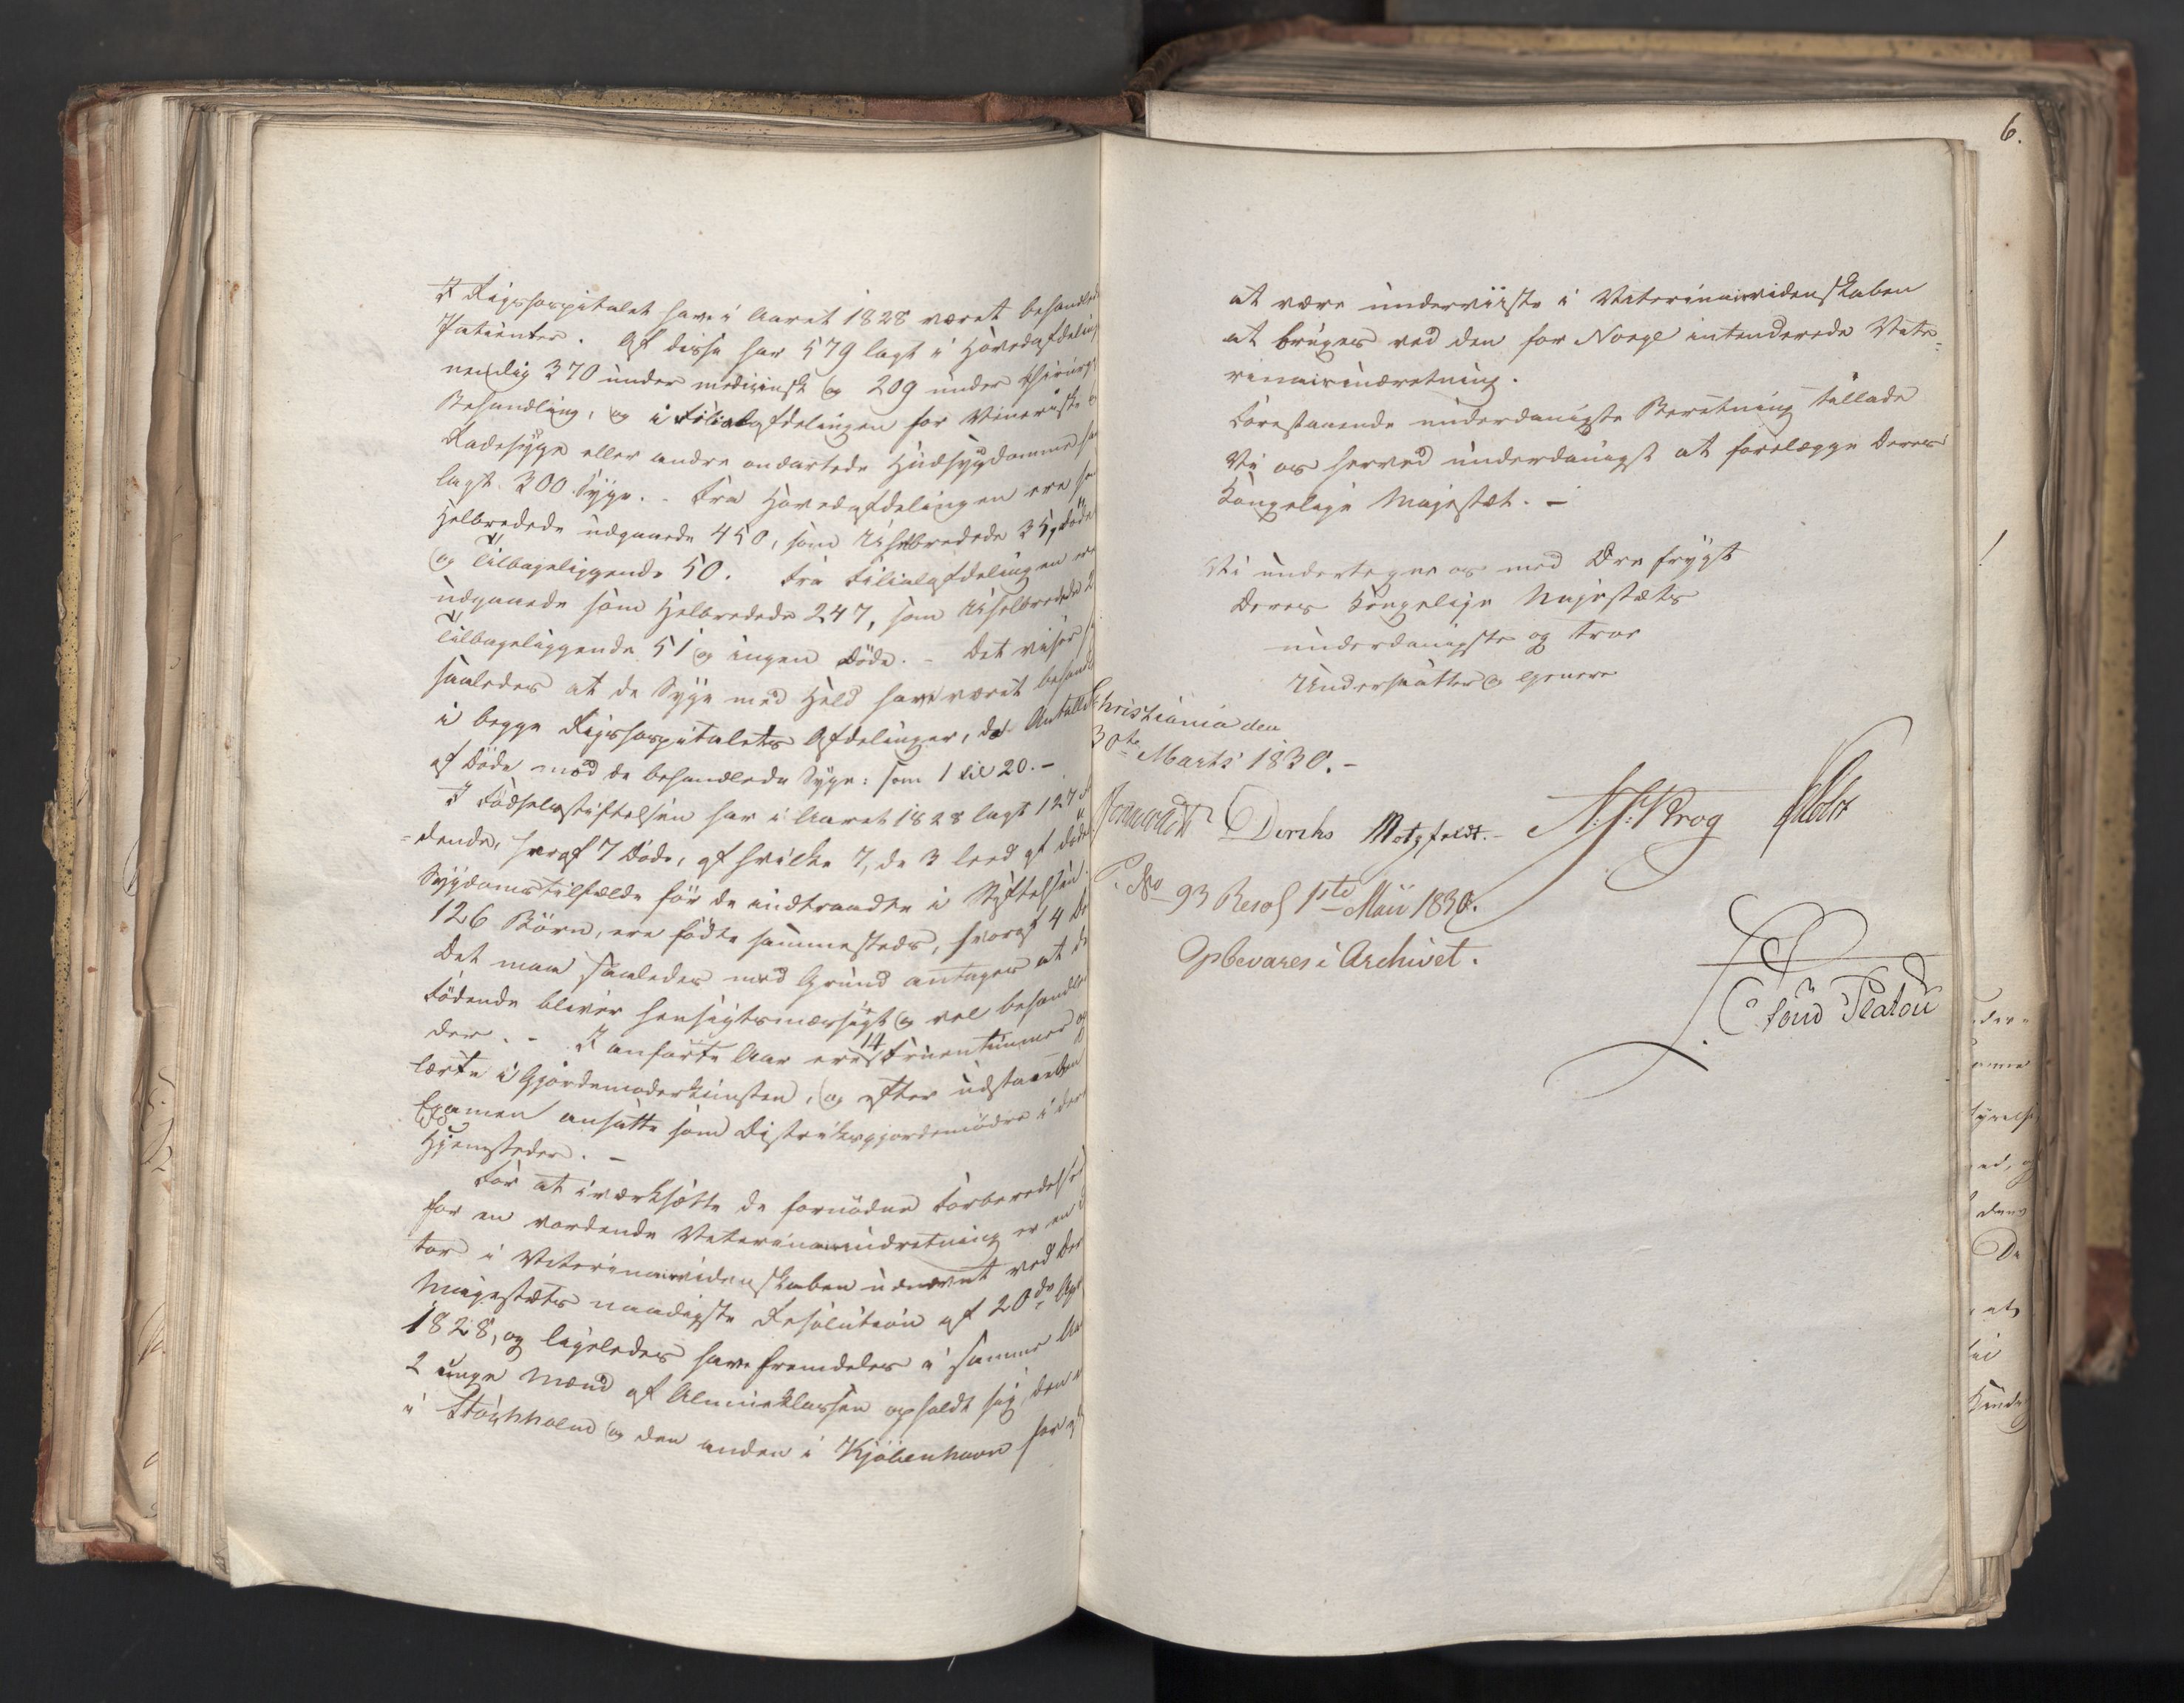 I Rigshospitalet have i Aaret 1828 været behandlede
Patienter. Af disse har 579 lagt i Hovedafdeling
nemlig 370 under medicinsk og 209 under chirurg
Behandling, og i Filialafdelingen for Veneriske
Radesyge eller andre ondartede Hudsygdomme ha
lagt 300 Syge. - Fra Hovedafdelingen ere som
Helbredede udgaaede 450, som Uhelbredede 35, döde
og Tilbageliggende 50. Fra Filialafdelingen ere
udgaaede som Helbredede 247, som Uhelbredede 2
Tilbageliggende 51 og ingen Döde. - Det viser
saaledes at de Syge med Held have været behand
i begge Rigshospitalets Afdelinger, da Antallet
af Döde mod de behandlede Syge: som 1 til 20. -
I Födselsstiftelsen har i Aaret 1828 lagt 127
dende, hvoraf 7 Döde, af hvilke 7, de 3 leed af
Sygdomstilfælde för de indtraadte i Stiftelsen.
126 Börn, ere födte sammesteds, hvoraf 4
Det maa saaledes med Grund antages at de
Födende bliver hensigtsmæssigt og vel behandle
der. - I anförte Aar ere 14 Fruentimmer
lærte i Gjordemoderkunsten, og efter udstanden
Examen ansatte som Distriktsgjordemödre i der
Hjemsteder. -
For at iværksætte de fornödne Forberedelse
for en vordende Veterinairindretning er en
tor i Veterinairvidenskaben udnævnt ved Der
Majestæts naadigste Resolution af 20de Apr
1828, og ligeledes have fremdeles i samme Aa
2 unge Mænd af Almueklassen opholdt sig, den
i Stockholm og den anden i Kjöbenhavn for
6.
at være underviiste i Veterinairvidenskaben
at bruges ved den for Norge intenderede Vete-
rinairindretning.
Forestaaende underdanigste Beretning tillade
Vi os herved underdanigst at forelægge Deres
Kongelige Majestæt. -
Vi undertegne os med Ærefrygt
Deres Kongelige Majestæts
underdanigste og troe
Undersaatter og
Christiania den
30te Marts 1830. -
Diriks Motzfeldt. - N. J. Krog
P. No 93 Resol 1ste Mai 1830.
Opbevares i Archivet.
C. Lond Platou